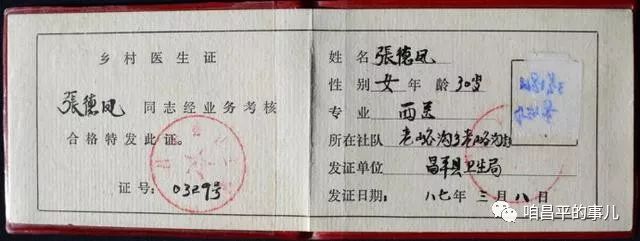 乡村医生证
張德凤 同志经业务考核
合格特发此证。
证号：0329号
姓名 張德凤
性别 女 年龄 30岁
专业 西医
所在社队 老峪沟乡老峪沟村
发证单位 昌平县卫生局
发证日期：八七年 三月 八日
咱昌平的事儿